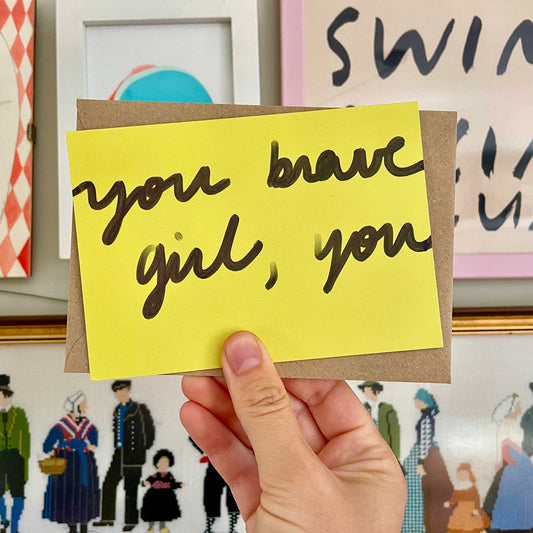 you brave
girl, you
SWIM